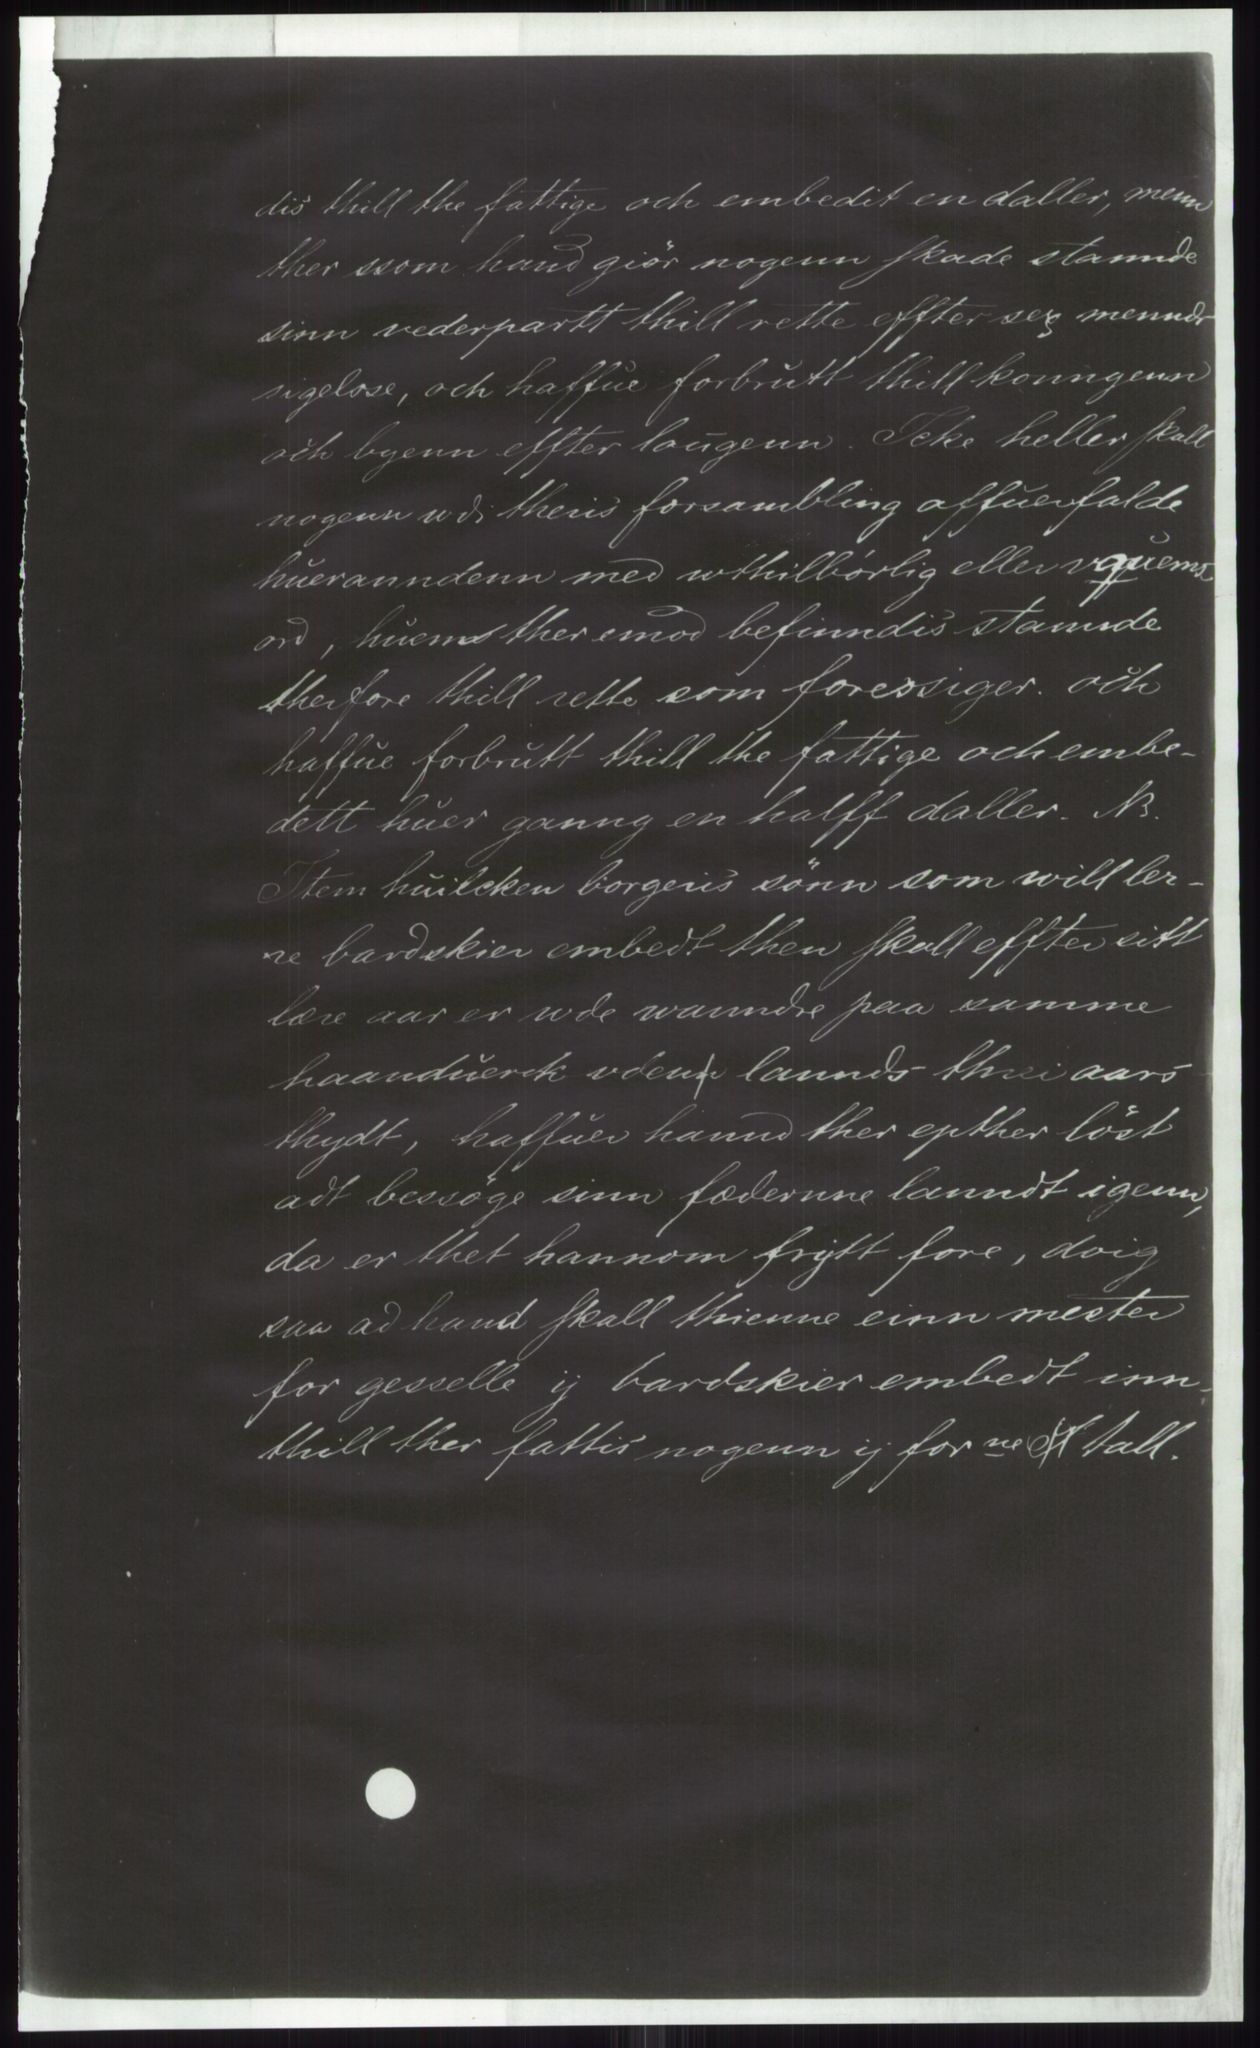 dis thill the fattige och embedit en daller, menn
ther ssom hand giör nogenn skade stannde
sinn vederpartt thill rette effter sex mennds
sigelse, och haffue forbrutt thill konngenn
och byenn effter laugenn. Icke heller skall
nogenn udi theris forsambling affuerfalde
hueranndenn med uthilbørlig eller vquems
ord, huem ther emod befinndis stannde
therfore thill rette som foresiger. och
haffue forbrutt thill the fattige och embe-
dett huer ganng en halff daller. N3.
Item huilcken borgeris sönn som will ler-
ne bardskier embedt then skall effter sitt
lære aar er ude wanndre paa samme
haanduerck vden lannds threi aars
thydt, haffuer hannd ther epther löst
adt bessöge sinn fædernne lanndt igenn,
da er thet hannom frÿtt fore, doig
saa ad hand skall thienne einn mester
for gesselle ij bardskier embedt inn-
thill ther fattis nogenn ij for ne tall.